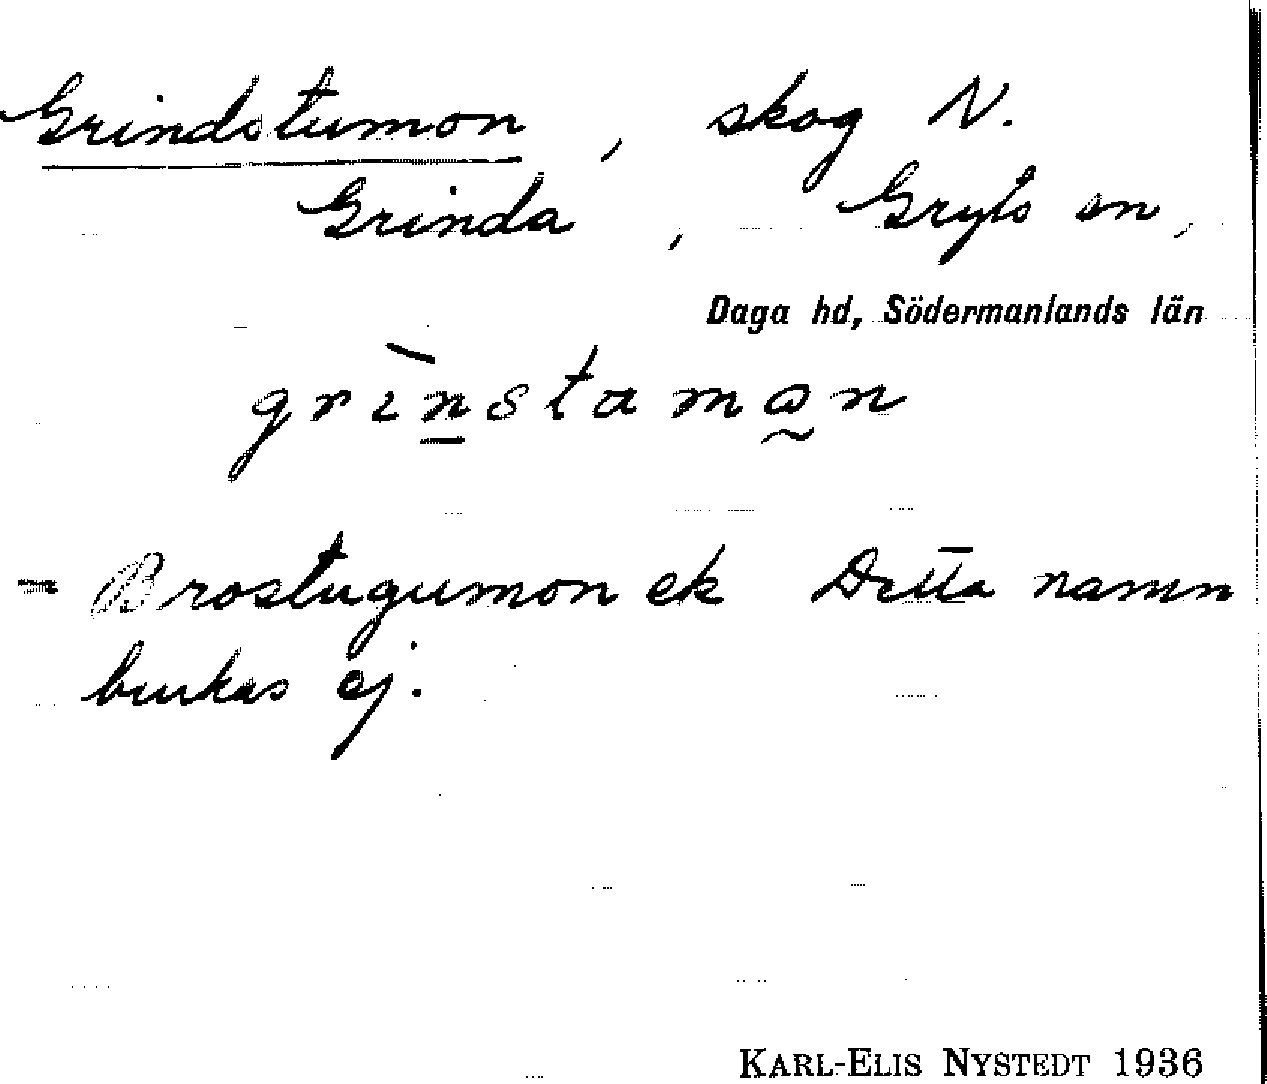 Grindstumon, skog N.
Grinda, Gryts sn,
Daga hd, Södermanlands län
grinstamon
= Brostugumon ek Detta namn
brukas ej.
KARL-ELIS NYSTEDT 1936